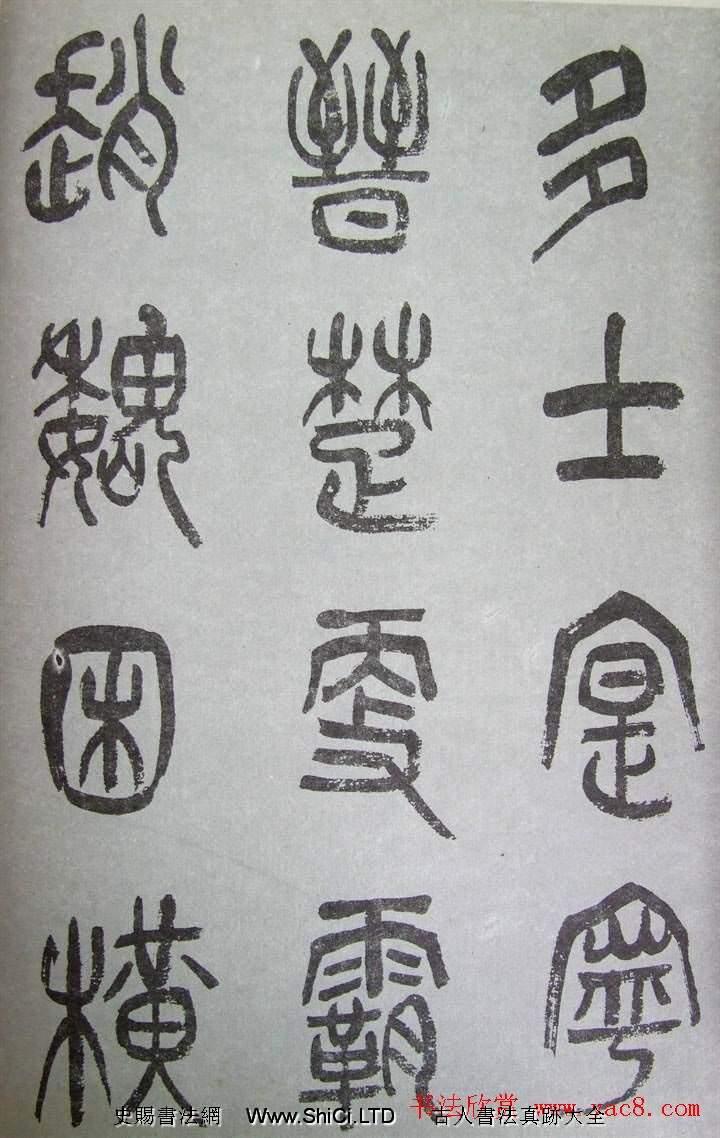 多士寔寧
晉楚更霸
趙魏困橫
史賜書法網 Www.ShiCi.LTD 古人書法真跡大全
书法欣赏 www.xac8.com